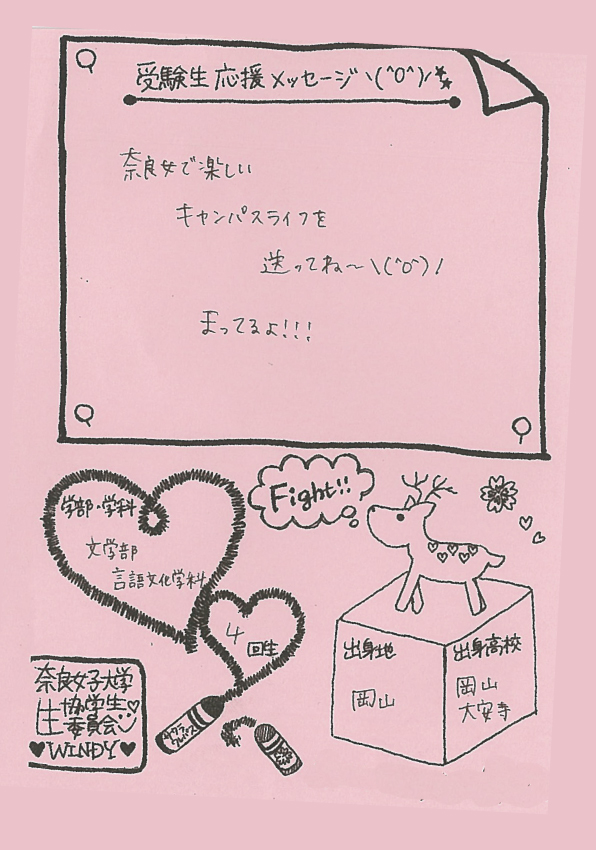 受験生応援メッセージ \(^0^)/
奈良女で楽しい
キャンパスライフを
送ってね〜\(^o^)/
まってるよ!!!
Fight!!
学部・学科
文学部
言語文化学科
4回生
出身地
岡山
出身高校
岡山
大安寺
奈良女子大学
生協学生
委員会
♥WINDY♥
サクラ
クレパス